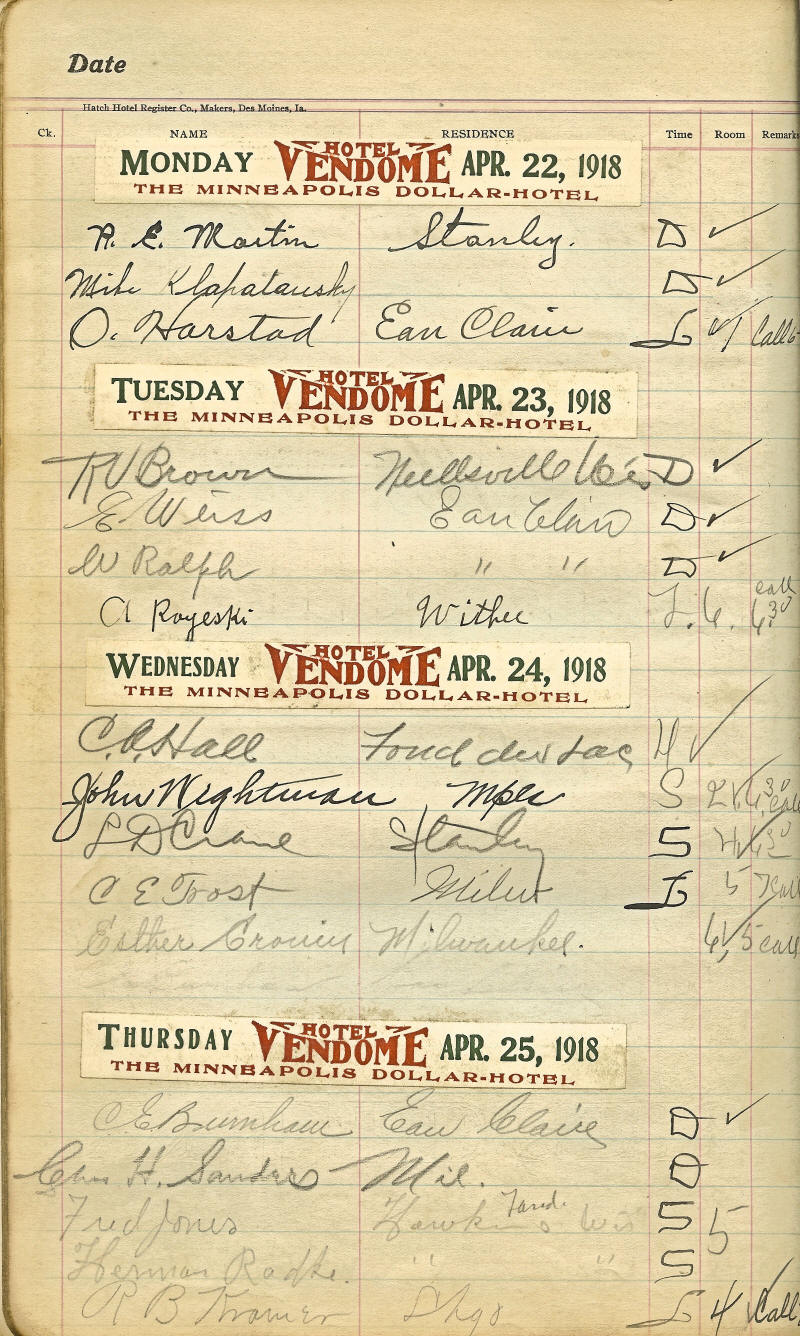 Date
Hatch Hotel Register Co., Makers, Des Moines, Ia.
Ck. NAME RESIDENCE Time Room Remarks
MONDAY HOTEL VENDOME APR. 22, 1918
THE MINNEAPOLIS DOLLAR-HOTEL
A. E. Martin Stanley. D ✓
Mike Klapatausky D ✓
O. Harstad Eau Claire L ✓ 1 Call 6
TUESDAY HOTEL VENDOME APR. 23, 1918
THE MINNEAPOLIS DOLLAR-HOTEL
RV Brown Neillsville Wis D ✓
E. Weiss Eau Clair D ✓
W Ralph " " D ✓
A Royeski Withee L. 6. call 6.30
WEDNESDAY HOTEL VENDOME APR. 24, 1918
THE MINNEAPOLIS DOLLAR-HOTEL
C. A. Hall Fond du Lac ✓
John Wightman Mpls S 2 ✓ 6.30 call
L D Crane Stanley S 4
C E Trost Milw L 5 7 Call
Esther Milwaukee. 6 ✓ 5 call
THURSDAY HOTEL VENDOME APR. 25, 1918
THE MINNEAPOLIS DOLLAR-HOTEL
C E Burnham Eau Claire D ✓
Chas H. Sanders Mil. D
Fred Jones Hawkins Wis S 5
Herman Radke. " " S
R B Kromer Chgo L 4 ✓ Call